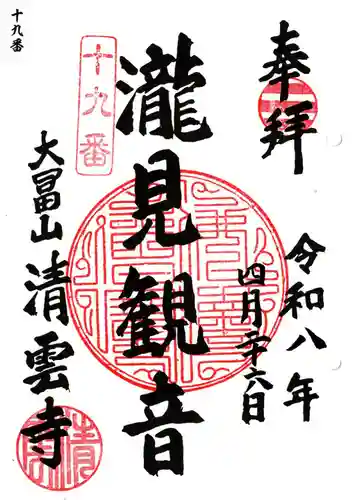 十九番
奉拝
令和八年
四月二十六日
十九番
瀧見観音
大冨山
清雲寺